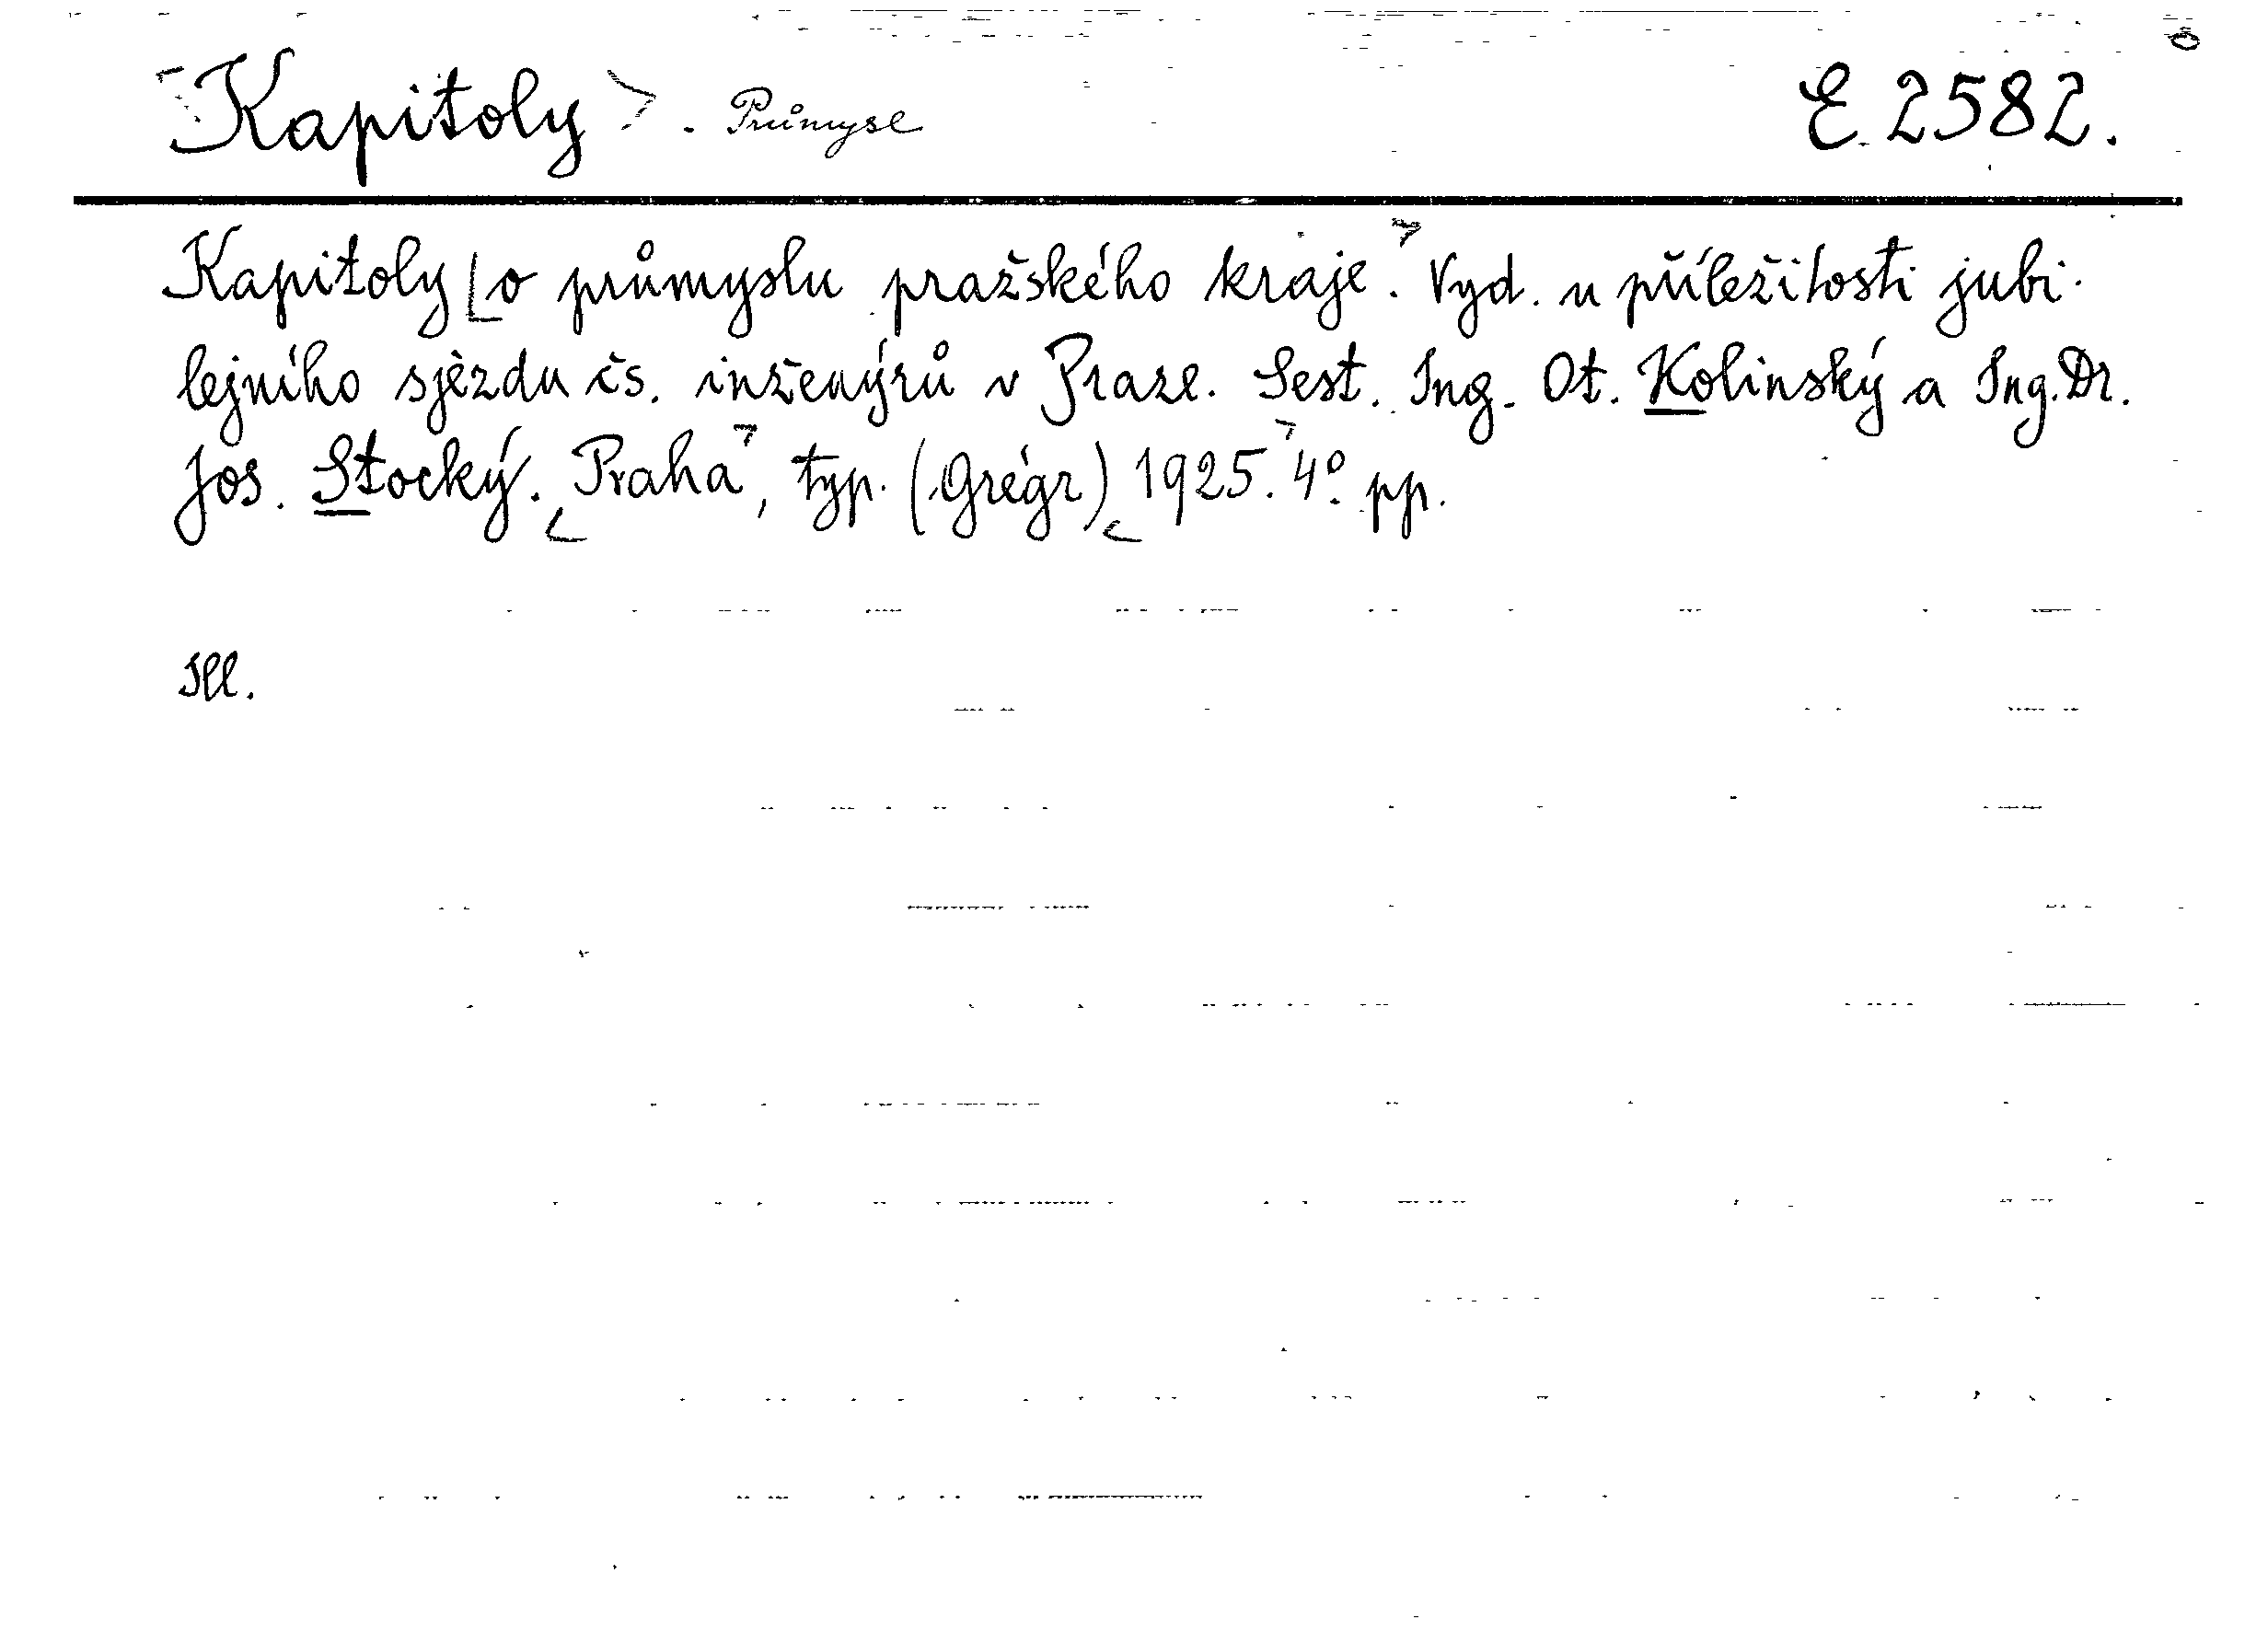 Kapitoly. Průmysl E 2582.
Kapitoly o průmyslu pražského kraje. Vyd. u příležitosti jubi-
lejního sjezdu čs. inženýrů v Praze. Sest. Ing. Ot. Kolinský a Ing. Dr.
Jos. Stocký. Praha, typ. (Grégr) 1925. 4º. pp.
Ill.